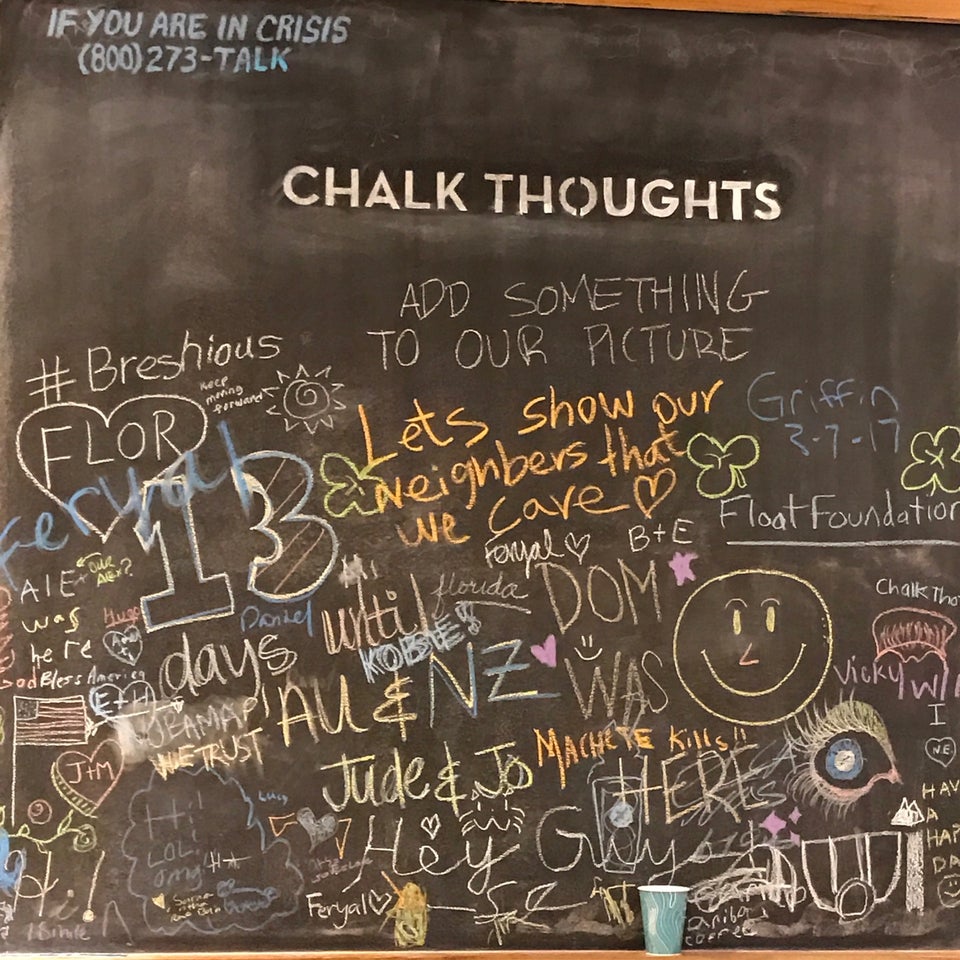 IF YOU ARE IN CRISIS
(800)273-TALK
CHALK THOUGHTS
ADD SOMETHING
TO OUR PICTURE
#Breshious
keep
moving
forward
FLOR
Lets show our
neighbors that
we care
Griffin
3-7-17
Float Foundation
Feryal
13
days until
Feryal
B+E
florida
AlE
was
here
"OUR
ALEX?
Hugo
Daniel
KOBIE!!
DOM
WAS
HERE
Chalk Tho
God Bless America
E+H
AU & NZ
Vicky W
I
NE
OBAMA
WE TRUST
MACHETE Kills!!
J+M
Jude & Jo
Lucy
Hi
LOL
omg
Hey Guys
HAV
A
HAP
DA
Feryal
coffee